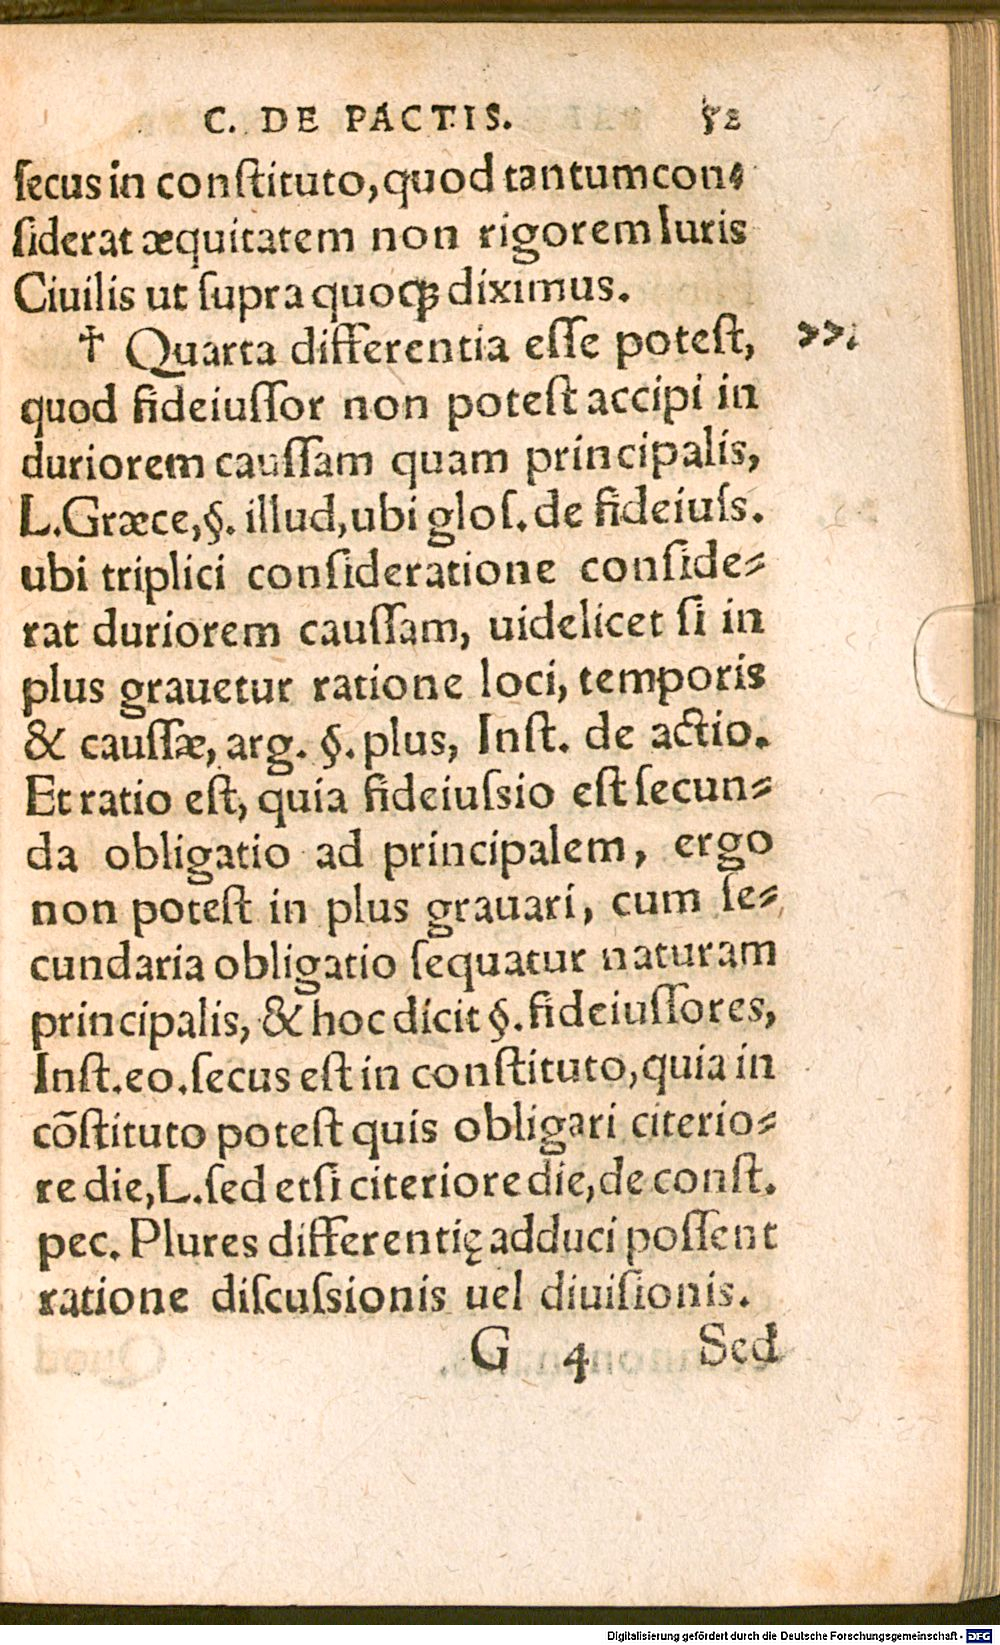 C. DE PACTIS. 52
ſecus in conſtituto, quod tantum con⸗
ſiderat æquitatem non rigorem Iuris
Ciuilis ut ſupra quoqꝫ diximus.
† Quarta differentia eſſe poteſt,
quod fideiuſſor non poteſt accipi in
duriorem cauſſam quam principalis,
L. Græce, §. illud, ubi gloſ. de fideiuſs.
ubi triplici conſideratione conſide⸗
rat duriorem cauſſam, uidelicet ſi in
plus grauetur ratione loci, temporis
& cauſſæ, arg. §. plus, Inſt. de actio.
Et ratio eſt, quia fideiuſsio eſt ſecun⸗
da obligatio ad principalem, ergo
non poteſt in plus grauari, cum ſe⸗
cundaria obligatio ſequatur naturam
principalis, & hoc dicit §. fideiuſſores,
Inſt. eo. ſecus eſt in conſtituto, quia in
cõſtituto poteſt quis obligari citerio⸗
re die, L. ſed etſi citeriore die, de conſt.
pec. Plures differentię adduci poſſent
ratione diſcuſsionis uel diuiſionis.
G 4 Sed
Digitalisierung gefördert durch die Deutsche Forschungsgemeinschaft - DFG